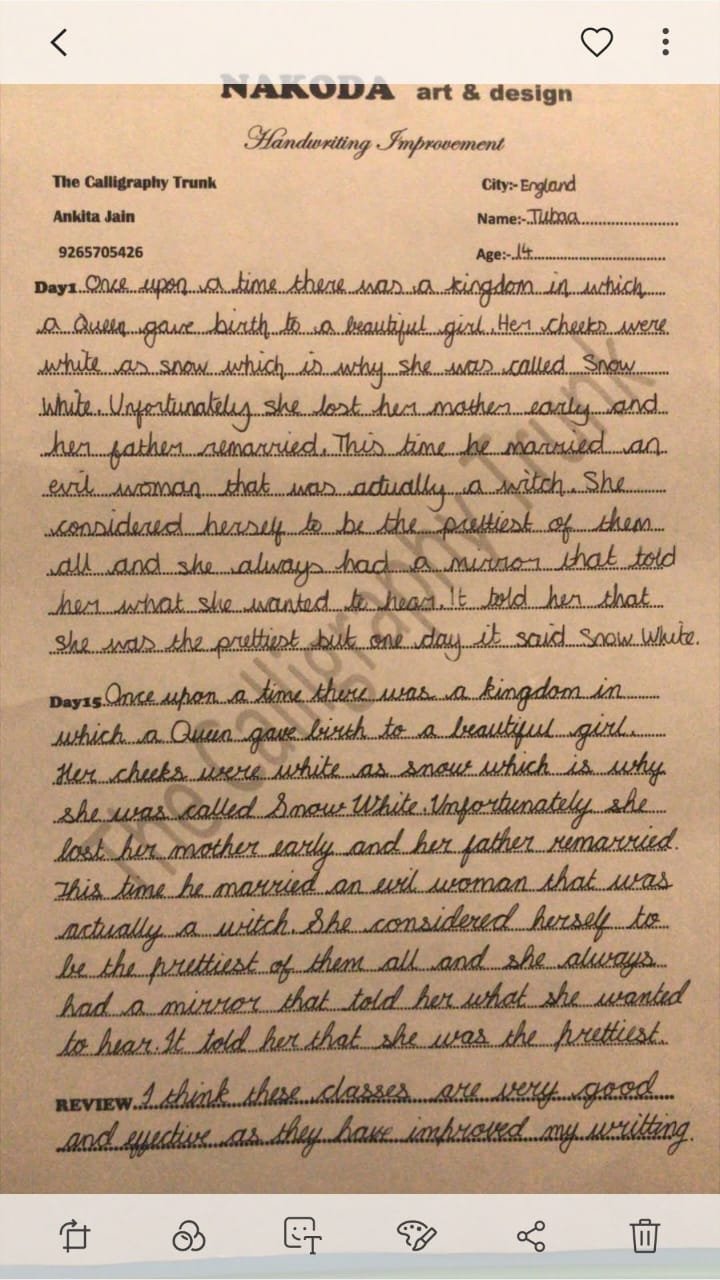 NAKODA art & design
Handwriting Improvement
The Calligraphy Trunk
City:- England
Ankita Jain
Name:- Tubaa
9265705426
Age:- 14
Day1 Once upon a time there was a kingdom in which
a Queen gave birth to a beautiful girl. Her cheeks were
white as snow which is why she was called Snow
White. Unfortunately she lost her mother early and
her father remarried. This time he married an
evil woman that was actually a witch. She
considered herself to be the prettiest of them
all and she always had a mirror that told
her what she wanted to hear. It told her that
she was the prettiest but one day it said Snow White.
Day15 Once upon a time there was a kingdom in
which a Queen gave birth to a beautiful girl.
Her cheeks were white as snow which is why
she was called Snow White. Unfortunately she
lost her mother early and her father remarried.
This time he married an evil woman that was
actually a witch. She considered herself to
be the prettiest of them all and she always
had a mirror that told her what she wanted
to hear. It told her that she was the prettiest.
REVIEW I think these classes are very good
and effective as they have improved my writting.
The Calligraphy Trunk
T